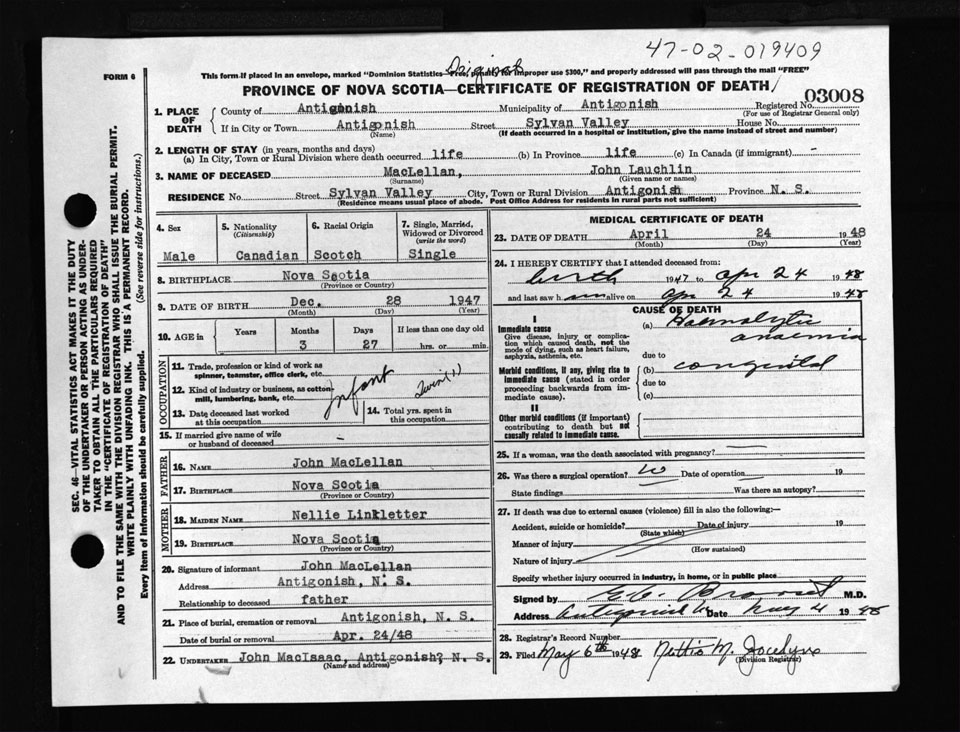 47-02-019409
Original
FORM 6
This form if placed in an envelope, marked "Dominion Statistics—Free, penalty for improper use $300," and properly addressed will pass through the mail "FREE"
PROVINCE OF NOVA SCOTIA—CERTIFICATE OF REGISTRATION OF DEATH
03008
1. PLACE OF DEATH
County of Antigonish Municipality of Antigonish Registered No.
(For use of Registrar General only)
If in City or Town Antigonish Street Sylvan Valley House No.
(Name) (If death occurred in a hospital or institution, give the name instead of street and number)
2. LENGTH OF STAY (in years, months and days)
(a) In City, Town or Rural Division where death occurred life (b) In Province life (c) In Canada (if immigrant) -
3. NAME OF DECEASED MacLellan, John Lauchlin
(Surname) (Given name or names)
RESIDENCE No. Street Sylvan Valley City, Town or Rural Division Antigonish Province N. S.
(Residence means usual place of abode. Post Office Address for residents in rural parts not sufficient)
4. Sex 5. Nationality (Citizenship) 6. Racial Origin 7. Single, Married, Widowed or Divorced (write the word)
Male Canadian Scotch Single
8. BIRTHPLACE Nova Scotia
(Province or Country)
9. DATE OF BIRTH Dec. 28 1947
(Month) (Day) (Year)
10. AGE in Years Months Days If less than one day old
3 27 hrs. or min.
OCCUPATION
11. Trade, profession or kind of work as spinner, teamster, office clerk, etc.
12. Kind of industry or business, as cotton-mill, lumbering, bank, etc.
Infant Twin (1)
13. Date deceased last worked at this occupation
14. Total yrs. spent in this occupation
15. If married give name of wife or husband of deceased -
FATHER
16. NAME John MacLellan
17. BIRTHPLACE Nova Scotia
(Province or Country)
MOTHER
18. MAIDEN NAME Nellie Linkletter
19. BIRTHPLACE Nova Scotia
(Province or Country)
20. Signature of informant John MacLellan
Address Antigonish, N. S.
Relationship to deceased father
21. Place of burial, cremation or removal Antigonish, N. S.
Date of burial or removal Apr. 24/48
22. UNDERTAKER John MacIsaac, Antigonish? N. S.
(Name and address)
MEDICAL CERTIFICATE OF DEATH
23. DATE OF DEATH April 24 1948
(Month) (Day) (Year)
24. I HEREBY CERTIFY that I attended deceased from:
birth 1947 to Apr 24 1948
and last saw h im alive on Apr 24 1948
CAUSE OF DEATH
I
Immediate cause
Give disease, injury or complication which caused death, not the mode of dying, such as heart failure, asphyxia, asthenia, etc.
(a) Haemolytic anaemia
due to
Morbid conditions, if any, giving rise to immediate cause (stated in order proceeding backwards from immediate cause).
(b) congenital
due to
(c)
II
Other morbid conditions (if important) contributing to death but not causally related to immediate cause.
25. If a woman, was the death associated with pregnancy?
26. Was there a surgical operation? Date of operation 19
State findings Was there an autopsy?
27. If death was due to external causes (violence) fill in also the following:—
Accident, suicide or homicide? Date of injury 19
(State which)
Manner of injury
(How sustained)
Nature of injury
Specify whether injury occurred in industry, in home, or in public place
Signed by M.D.
Address Antigonish Date May 4 1948
28. Registrar's Record Number
29. Filed May 6th 1948 Nettie M. Jocelyn
(Division Registrar)
SEC. 46—VITAL STATISTICS ACT MAKES IT THE DUTY
OF THE UNDERTAKER OR PERSON ACTING AS UNDER-
TAKER TO OBTAIN ALL THE PARTICULARS REQUIRED
IN THE "CERTIFICATE OF REGISTRATION OF DEATH"
AND TO FILE THE SAME WITH THE DIVISION REGISTRAR WHO SHALL ISSUE THE BURIAL PERMIT.
WRITE PLAINLY WITH UNFADING INK. THIS IS A PERMANENT RECORD.
Every item of Information should be carefully supplied. (See reverse side for instructions.)